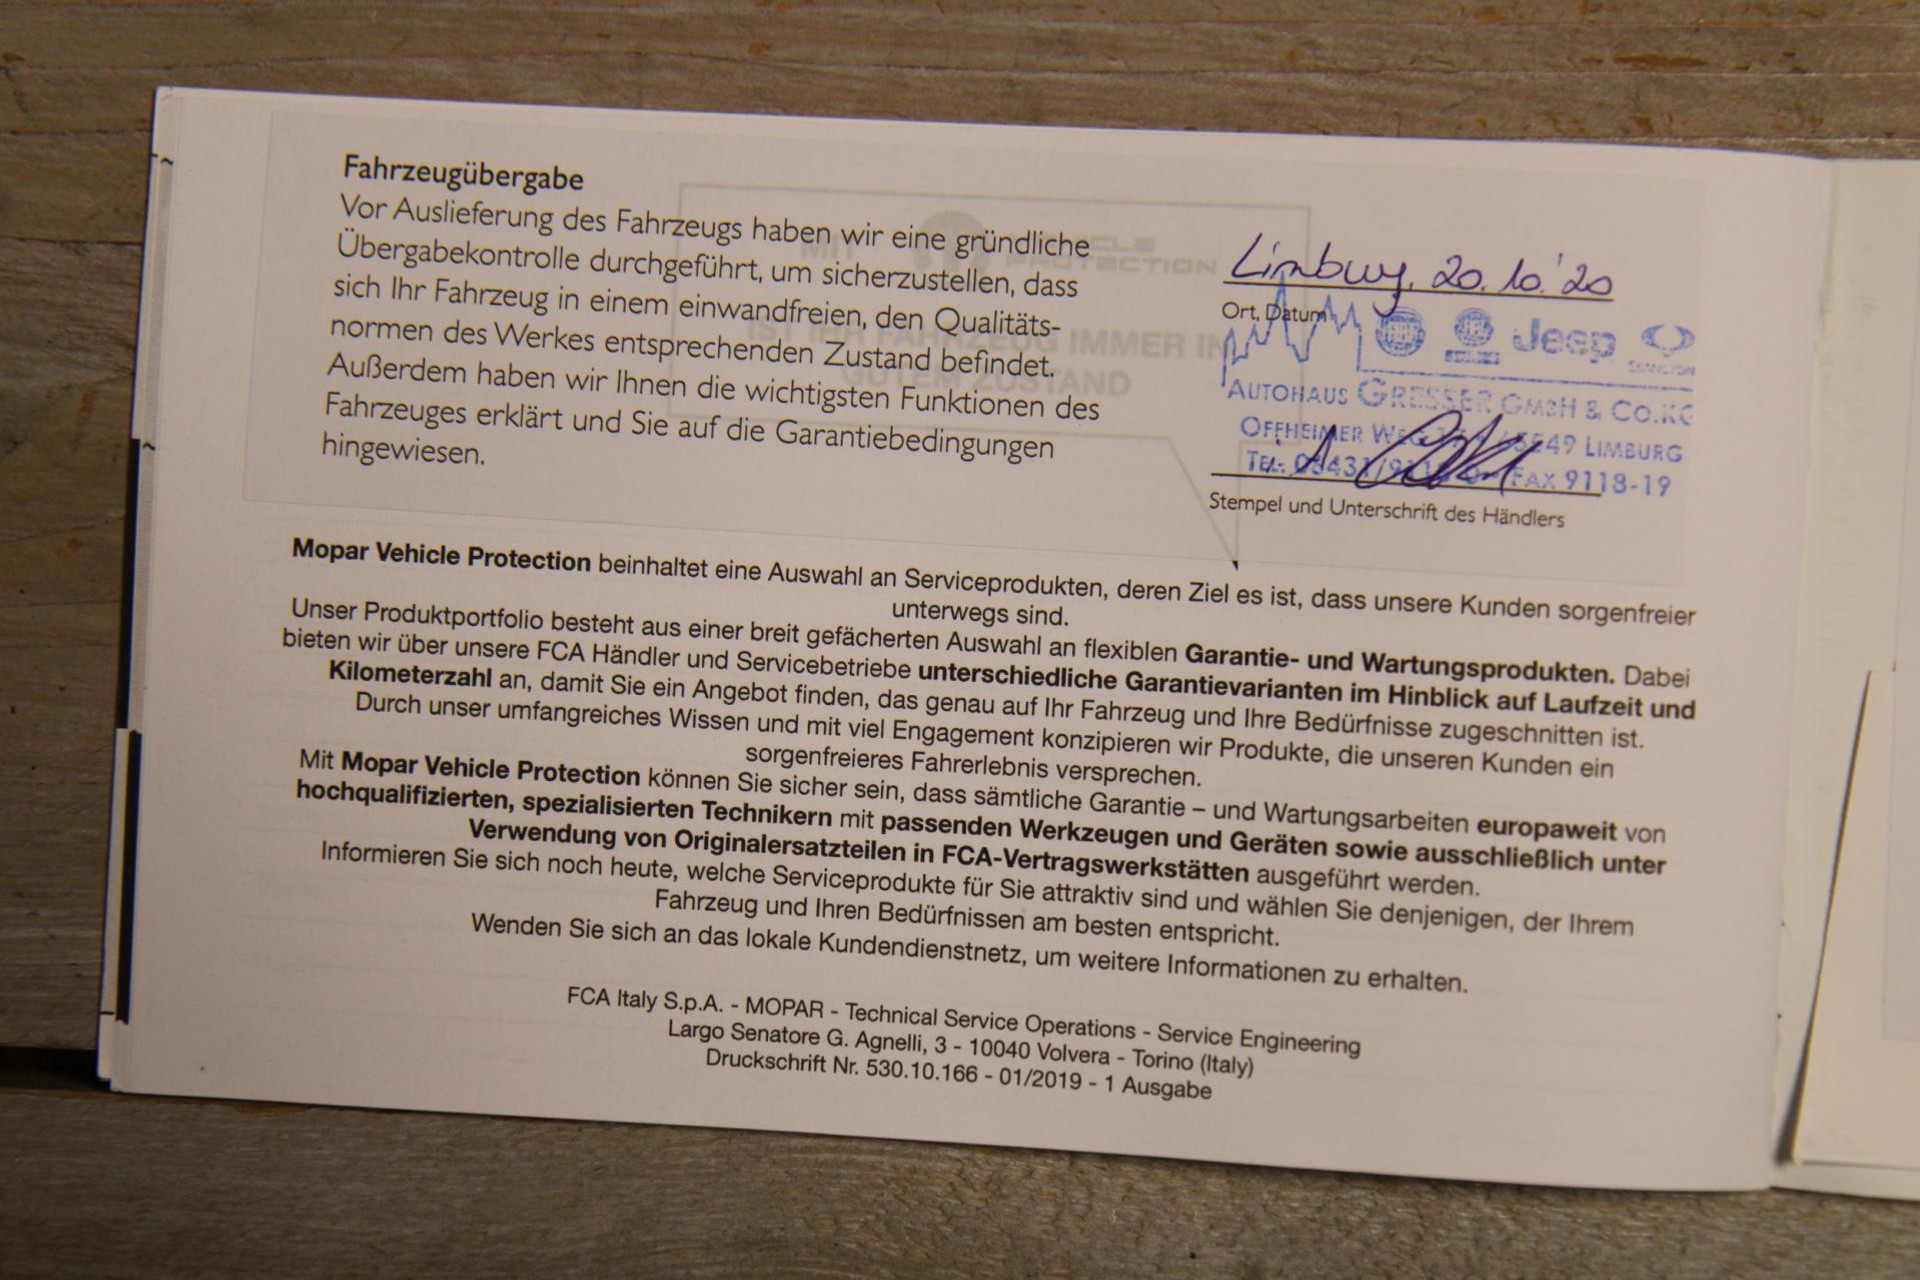 Fahrzeugübergabe
Vor Auslieferung des Fahrzeugs haben wir eine gründliche
Übergabekontrolle durchgeführt, um sicherzustellen, dass
sich Ihr Fahrzeug in einem einwandfreien, den Qualitäts-
normen des Werkes entsprechenden Zustand befindet.
Außerdem haben wir Ihnen die wichtigsten Funktionen des
Fahrzeuges erklärt und Sie auf die Garantiebedingungen
hingewiesen.
MIT VEHICLE
PROTECTION
IST IHR FAHRZEUG IMMER IN
GUTEM ZUSTAND
Limburg, 20.10.'20
Ort, Datum
Jeep
AUTOHAUS GRESSER GMBH & CO.KG
OFFHEIMER WEG LIMBURG
TEL. FAX 9118-19
i. A.
Stempel und Unterschrift des Händlers
Mopar Vehicle Protection beinhaltet eine Auswahl an Serviceprodukten, deren Ziel es ist, dass unsere Kunden sorgenfreier
unterwegs sind.
Unser Produktportfolio besteht aus einer breit gefächerten Auswahl an flexiblen Garantie- und Wartungsprodukten. Dabei
bieten wir über unsere FCA Händler und Servicebetriebe unterschiedliche Garantievarianten im Hinblick auf Laufzeit und
Kilometerzahl an, damit Sie ein Angebot finden, das genau auf Ihr Fahrzeug und Ihre Bedürfnisse zugeschnitten ist.
Durch unser umfangreiches Wissen und mit viel Engagement konzipieren wir Produkte, die unseren Kunden ein
sorgenfreieres Fahrerlebnis versprechen.
Mit Mopar Vehicle Protection können Sie sicher sein, dass sämtliche Garantie – und Wartungsarbeiten europaweit von
hochqualifizierten, spezialisierten Technikern mit passenden Werkzeugen und Geräten sowie ausschließlich unter
Verwendung von Originalersatzteilen in FCA-Vertragswerkstätten ausgeführt werden.
Informieren Sie sich noch heute, welche Serviceprodukte für Sie attraktiv sind und wählen Sie denjenigen, der Ihrem
Fahrzeug und Ihren Bedürfnissen am besten entspricht.
Wenden Sie sich an das lokale Kundendienstnetz, um weitere Informationen zu erhalten.
FCA Italy S.p.A. - MOPAR - Technical Service Operations - Service Engineering
Largo Senatore G. Agnelli, 3 - 10040 Volvera - Torino (Italy)
Druckschrift Nr. 530.10.166 - 01/2019 - 1 Ausgabe